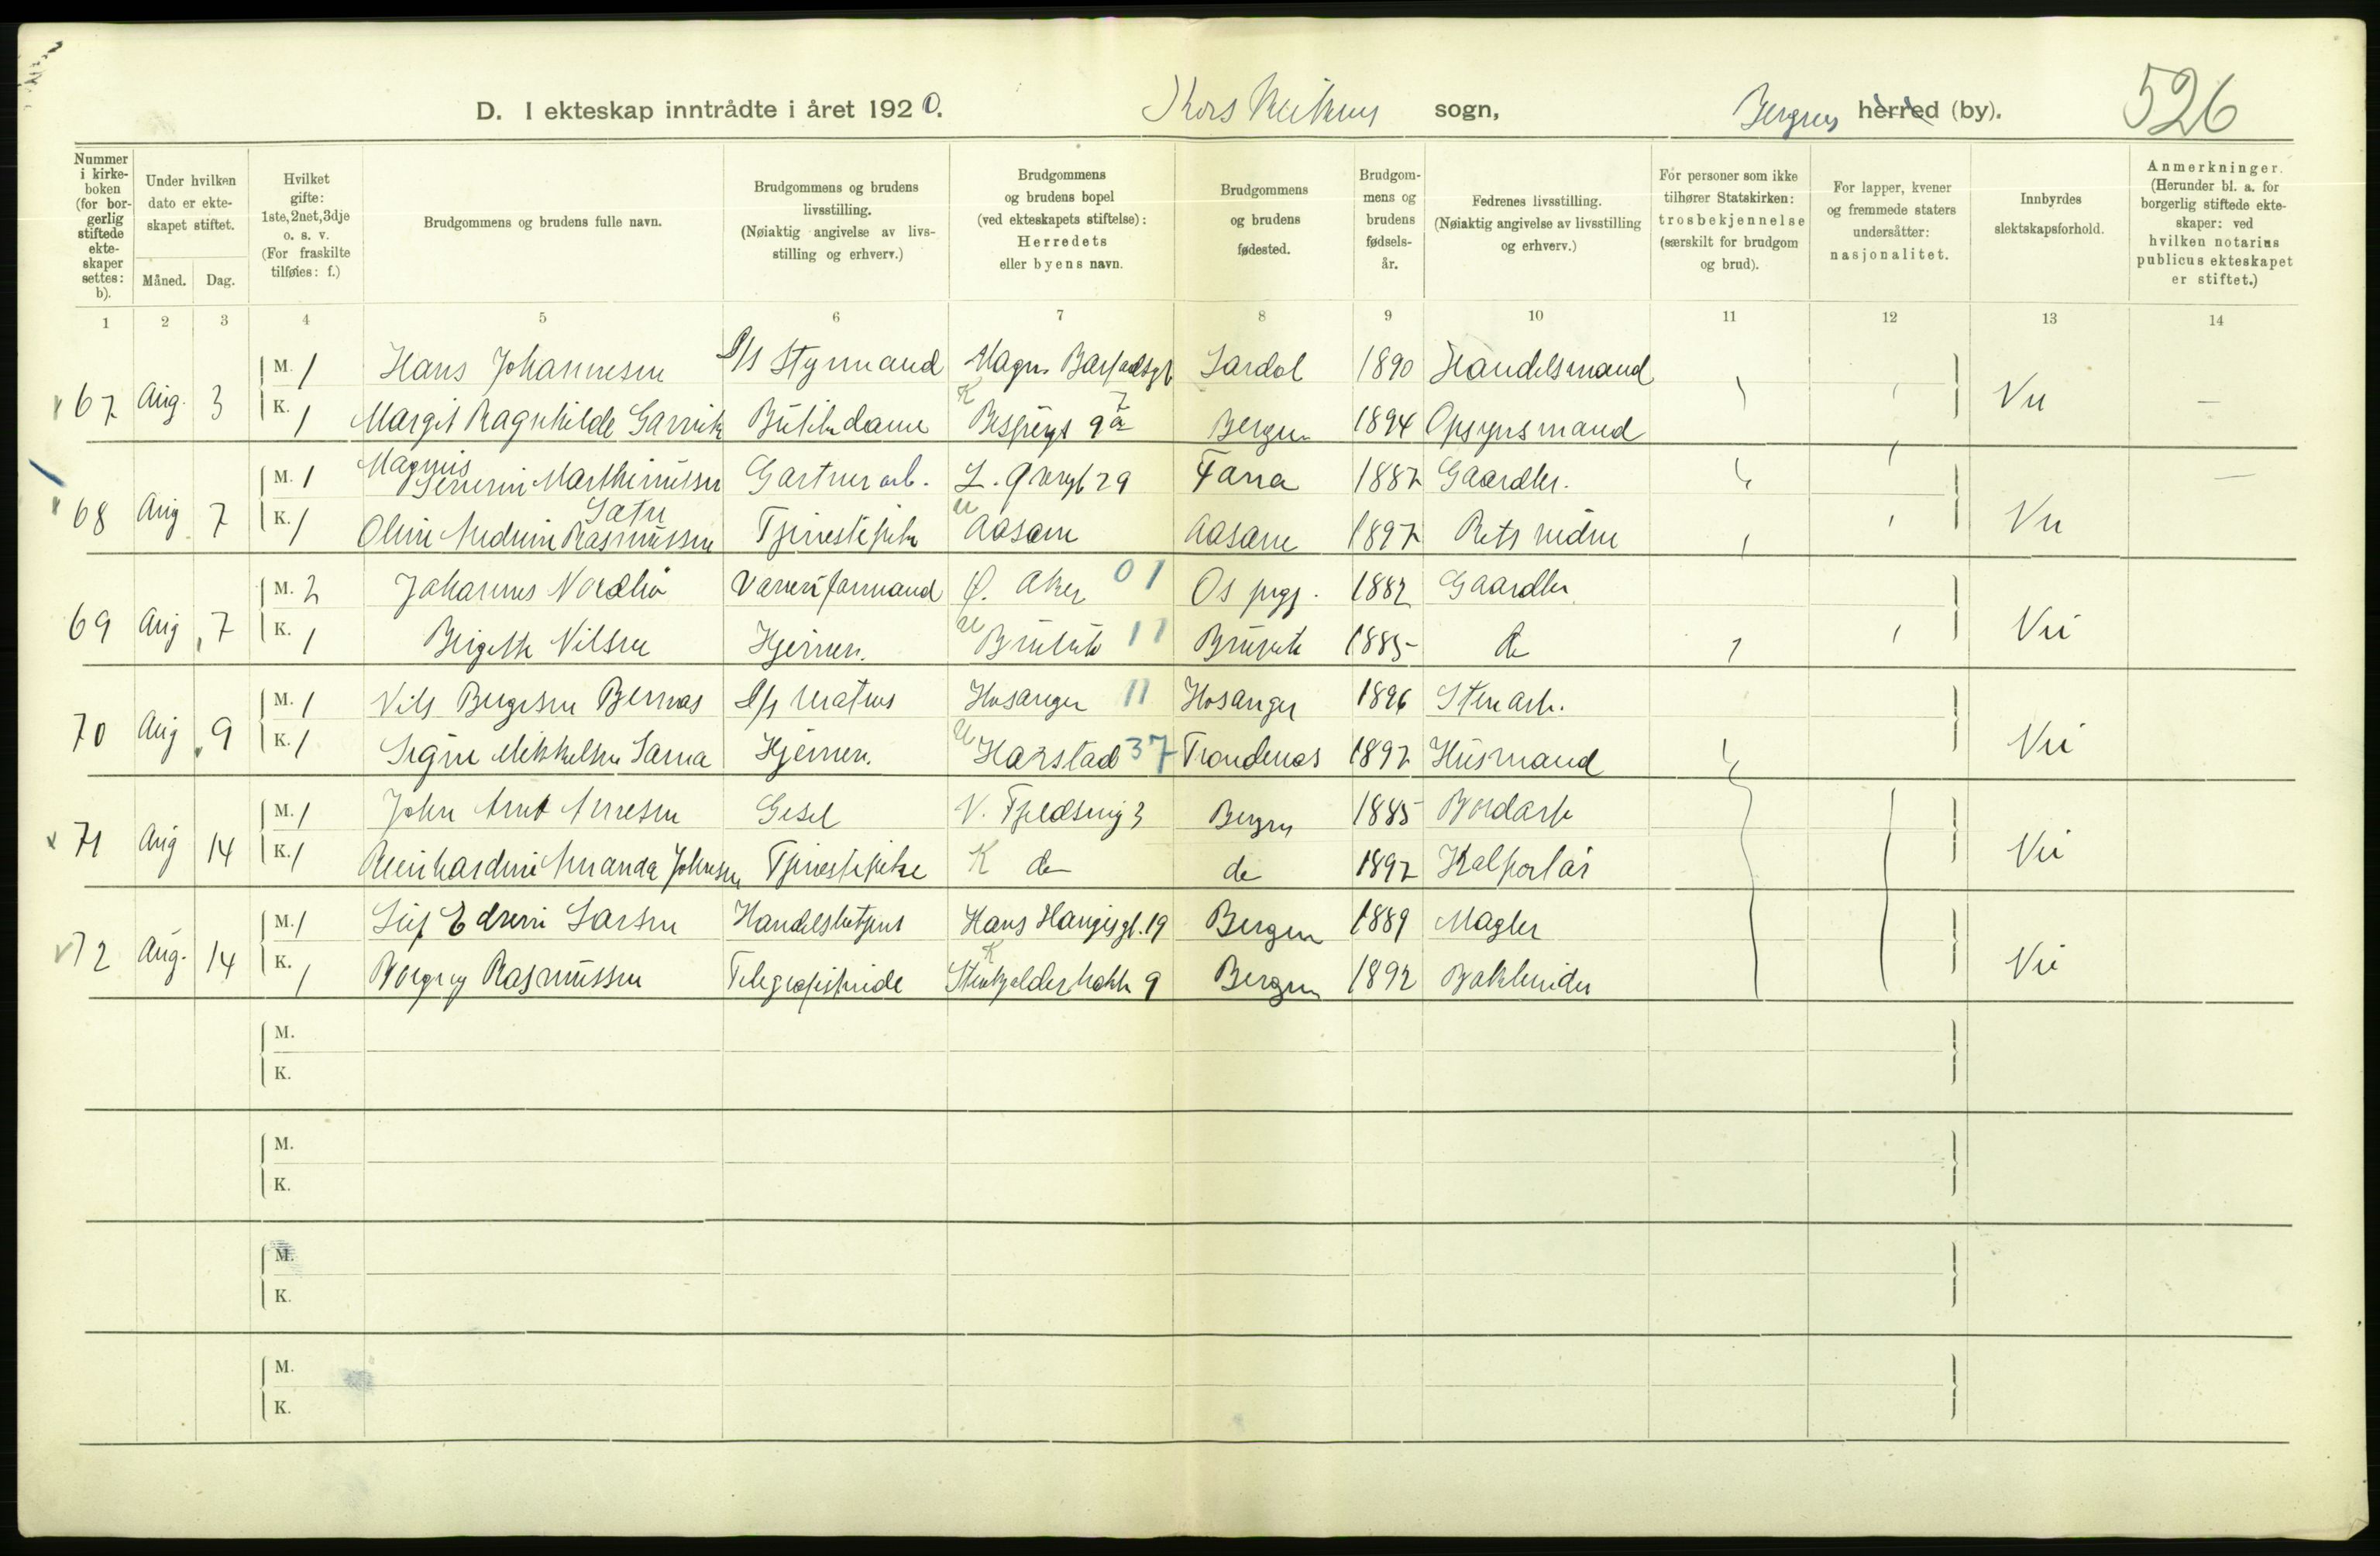 526
D. I ekteskap inntrådte i året 1920. Kors Kirkens sogn, Bergens herred (by).
Nummer i kirkeboken (for borgerlig stiftede ekteskaper settes: b).
Under hvilken dato er ekteskapet stiftet.
Måned. Dag.
Hvilket gifte: 1ste, 2net, 3dje o. s. v. (For fraskilte tilføies: f.)
Brudgommens og brudens fulle navn.
Brudgommens og brudens livsstilling. (Nøiaktig angivelse av livsstilling og erhverv.)
Brudgommens og brudens bopel (ved ekteskapets stiftelse): Herredets eller byens navn.
Brudgommens og brudens fødested.
Brudgommens og brudens fødselsår.
Fedrenes livsstilling. (Nøiaktig angivelse av livsstilling og erhverv.)
For personer som ikke tilhører Statskirken: trosbekjennelse (særskilt for brudgom og brud).
For lapper, kvener og fremmede staters undersåtter: nasjonalitet.
Innbyrdes slektskapsforhold.
Anmerkninger. (Herunder bl. a. for borgerlig stiftede ekteskaper: ved hvilken notarius publicus ekteskapet er stiftet.)
1 2 3 4 5 6 7 8 9 10 11 12 13 14
67 Aug. 3 M. 1 Hans Johannesen Styrmand Magn. Barfodsgt Lardal 1890 Handelsmand
K. 1 Margit Ragnhilde Butikdame Bergen 1894 Opsynsmand
68 Aug 7 M. 1 Magnus Severin Marthinussen Gartner arb. Fana 1887 Gaardbr.
K. 1 Oline Rasmussen Sætre Tjenestepike Aasane Aasane 1897
69 Aug 7 M. 2 Johannes Nordbø Ø. Aker 01 Os 1882 Gaardbr
K. 1 Birgitte Nilsen Hjemmev. 11 1885 do
70 Aug 9 M. 1 Nils Bergesen Bernæs Matros Hosanger 11 Hosanger 1896 Stenarb.
K. 1 Signe Mikkelsen Sama Hjemmev. Harstad 37 Trondenes 1892 Husmand
71 Aug 14 M. 1 John Arnt Arnesen Gesel N. Fjeldsmug 3 Bergen 1885 Bordarb
K. 1 Reinhardine Amanda Johnsen Tjenestepike K do do 1892 Kolportør
72 Aug. 14 M. 1 Leif Edvin Larsen Handelsbetjent Hans Haugesgt. 19 Bergen 1889 Mægler
K. 1 Borgny Rasmussen Telegrafistinde K 9 Bergen 1892 Bokbinder
M.
K.
M.
K.
M.
K.
M.
K.